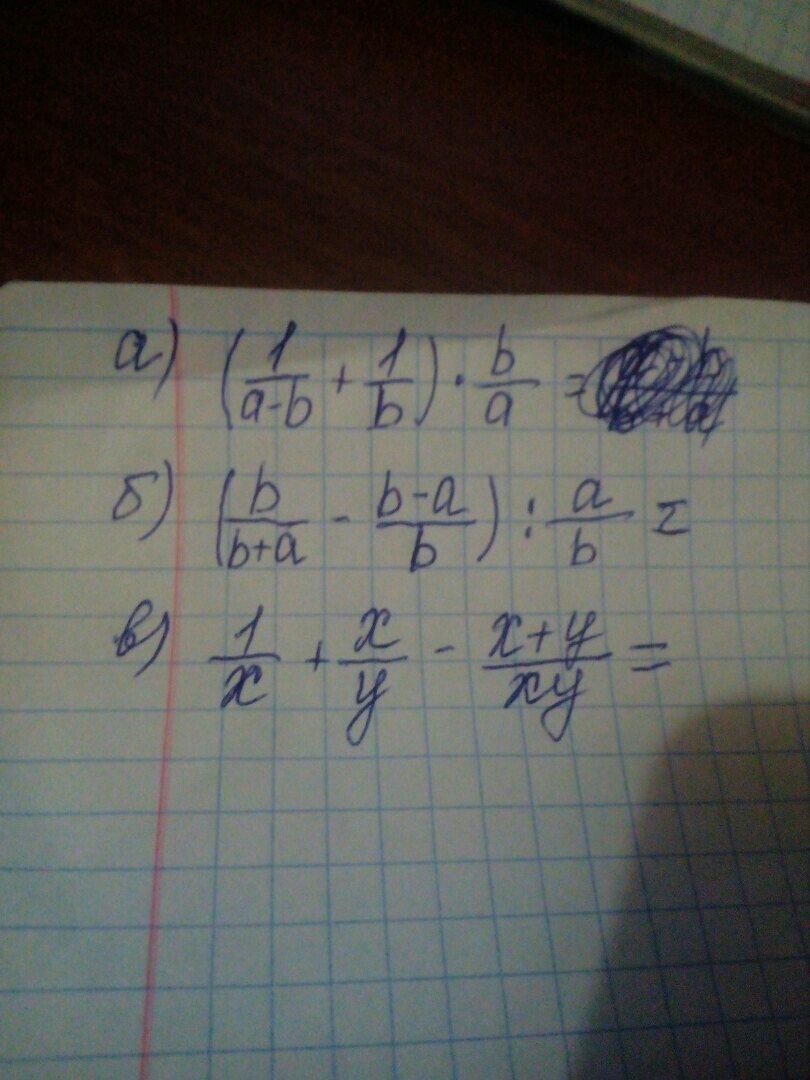 а) (1/(a-b) + 1/b) · b/a =
б) (b/(b+a) - (b-a)/b) : a/b =
в) 1/x + x/y - (x+y)/xy =